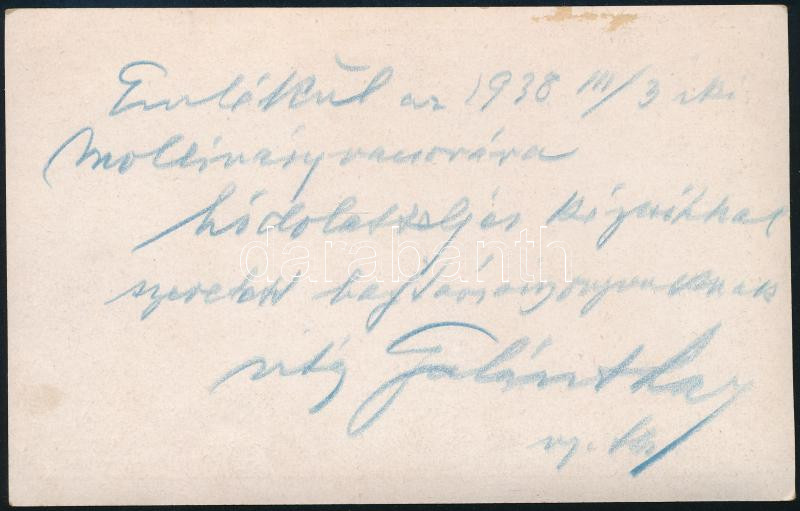 Emlékül az 1938 III/3 iki
Mollináryvacsorára
hódolatteljes kézcsókkal
szeretett bajtársasszonyunknak
vitéz Galánthay
darabanth